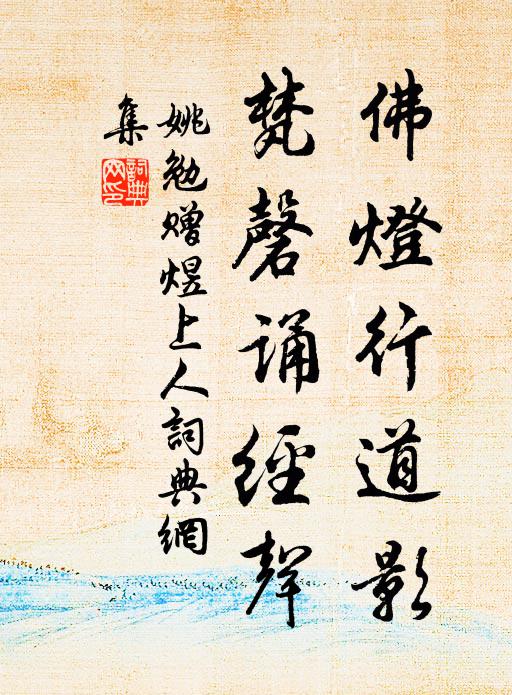 佛燈行道影
梵磬诵經聲
姚勉贈煜上人詞典網
集
詞典網印